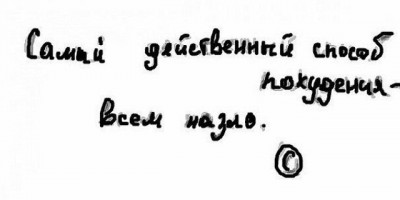 Самый действенный способ
похудения -
всем назло.
©